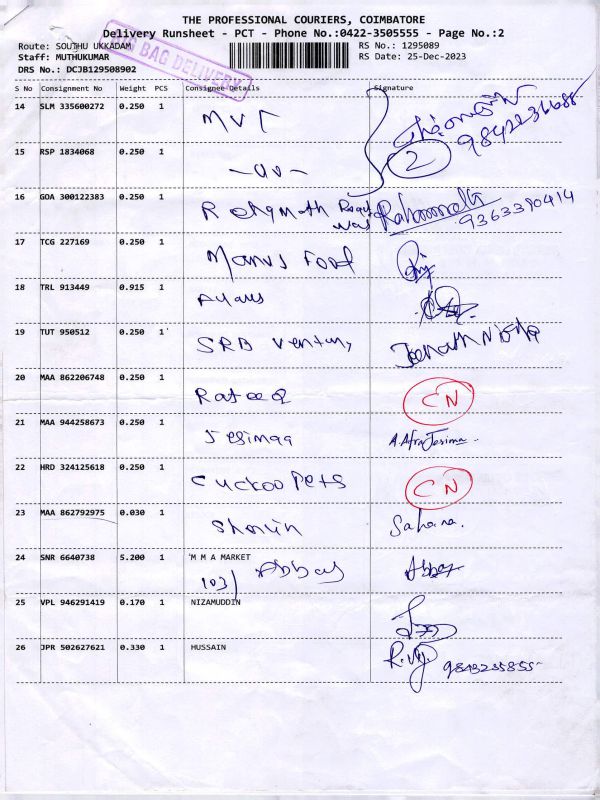 THE PROFESSIONAL COURIERS, COIMBATORE
Delivery Runsheet - PCT - Phone No.:0422-3505555 - Page No.:2
Route: SOUTHU UKKADAM
RS No.: 1295089
Staff: MUTHUKUMAR
RS Date: 25-Dec-2023
DRS No.: DCJB129508902
BAG DELIVERY
S No Consignment No Weight PCS Consignee Details Signature
14 SLM 335600272 0.250 1 MVT
2 9842236688
15 RSP 1834068 0.250 1 -do-
16 GOA 300122383 0.250 1 Rehmath Road
9363390414
17 TCG 227169 0.250 1 Manus Food
18 TRL 913449 0.915 1
19 TUT 950512 0.250 1 SRB Ventury Jeenath Nisha
20 MAA 862206748 0.250 1 Rafeeq CN
21 MAA 944258673 0.250 1 Jesimaa A.AfraJesima
22 HRD 324125618 0.250 1 Cuckoo Pets CN
23 MAA 862792975 0.030 1 Sahana.
24 SNR 6640738 5.200 1 'M M A MARKET
103/ Abbas Abbas
25 VPL 946291419 0.170 1 NIZAMUDDIN
26 JPR 502627621 0.330 1 HUSSAIN
9843235855